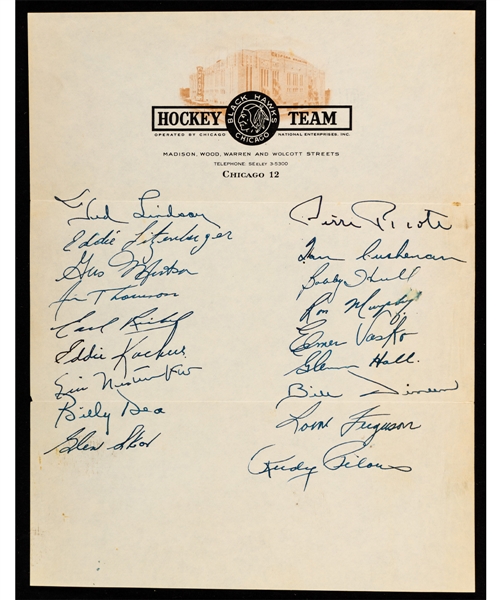 BLACK HAWKS
CHICAGO
HOCKEY TEAM
OPERATED BY CHICAGO NATIONAL ENTERPRISES, INC.
MADISON, WOOD, WARREN AND WOLCOTT STREETS
TELEPHONE SEELEY 3-5300
CHICAGO 12
Ted Lindsay
Eddie Litzenberger
Gus Mortson
Jim Thomson
Earl Reibel
Eddie Kachur
Eric Nesterenko
Billy Dea
Glen Skov
Pierre Pilote
Ian Cushenan
Bobby Hull
Ron Murphy
Elmer Vasko
Glenn Hall
Bill
Lorne Ferguson
Rudy Pilous